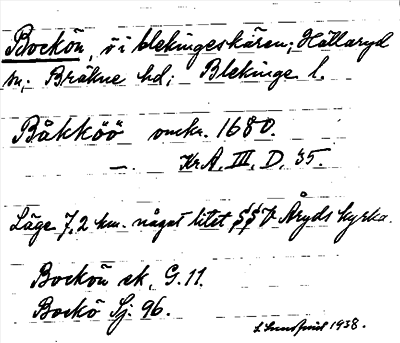 Bockön, ö i blekingeskären; Hällaryd
sn; Bräkne hd; Blekinge l.
Båkköö omkr. 1680.
—. Kr.A. III, D, 35.
Läge 7,2 km. något litet S V Åryds kyrka.
Bockön ek. G.11.
Bockö Sj. 96.
1938.